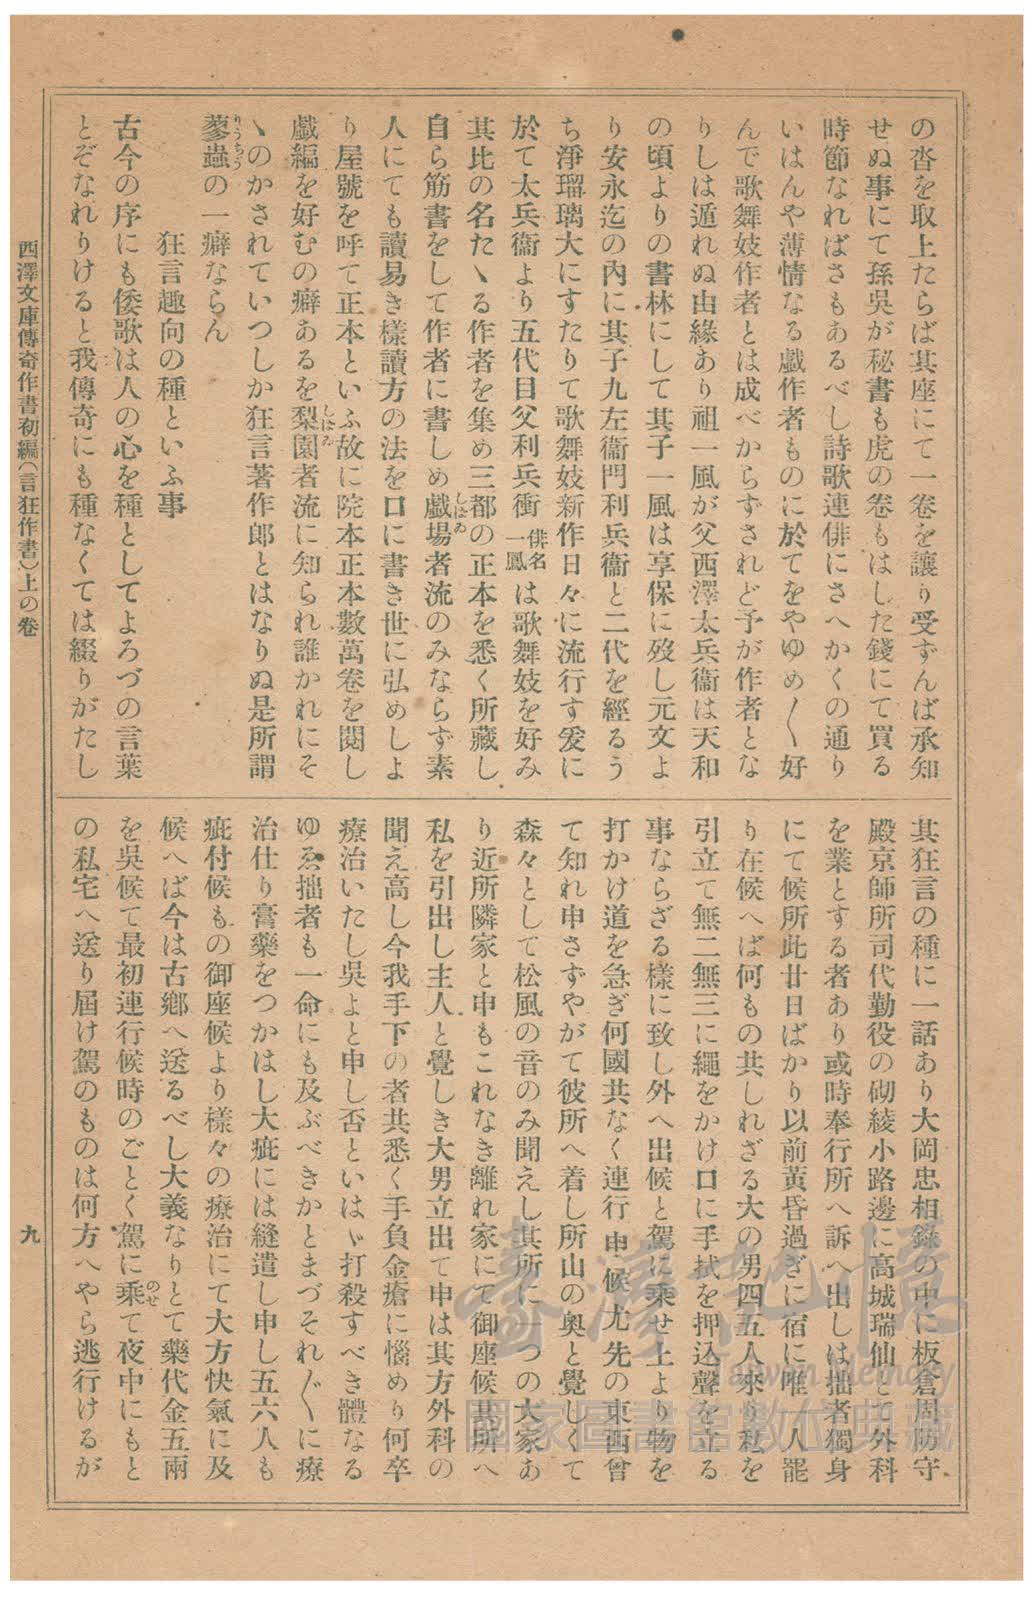 の沓を取上たらば其座にて一卷を讓り受ずんば承知
せぬ事にて孫吳が秘書も虎の卷もはした錢にて買る
時節なればさもあるべし詩歌連俳にさへかくの通り
いはんや薄情なる戯作者ものに於てをやゆめ〱好
んで歌舞妓作者とは成べからずされど予が作者とな
りしは遁れぬ由緣あり祖一風が父西澤太兵衞は天和
の頃よりの書林にして其子一風は享保に歿し元文よ
り安永迄の內に其子九左衞門利兵衞と二代を經るう
ち淨瑠璃大にすたりて歌舞妓新作日々に流行す爰に
於て太兵衞より五代目父利兵衝俳名一鳳は歌舞妓を好み
其比の名たゝる作者を集め三都の正本を悉く所藏し
自ら筋書をして作者に書しめ戯場しばゐ者流のみならず素
人にても讀易き樣讀方の法を口に書き世に弘めしよ
り屋號を呼て正本といふ故に院本正本數萬卷を閱し
戯編を好むの癖あるを梨園しばゐ者流に知られ誰かれにそ
ゝのかされていつしか狂言著作郎とはなりぬ是所謂
蓼蟲りうちうの一癖ならん
狂言趣向の種といふ事
古今の序にも倭歌は人の心を種としてよろづの言葉
とぞなれりけると我傳奇にも種なくては綴りがたし
其狂言の種に一話あり大岡忠相錄の中に板倉周防守
殿京師所司代勤役の砌綾小路邊に高城瑞仙と云外科
を業とする者あり或時奉行所へ訴へ出しは拙者獨身
にて候所此廿日ばかり以前黃昏過ぎに宿に唯一人罷
り在候へば何もの共しれざる大の男四五人來り私を
引立て無二無三に繩をかけ口に手拭を押込聲を立る
事ならざる樣に致し外へ出候と駕に乘せ上より物を
打かけ道を急ぎ何國共なく連行申候尤先の東西曾
て知れ申さずやがて彼所へ着し所山の奧と覺しくて
森々として松風の音のみ聞えし其所に一つの大家あ
り近所隣家と申もこれなき離れ家にて御座候其所へ
私を引出し主人と覺しき大男立出て申は其方外科の
聞え高し今我手下の者共悉く手負金瘡に惱めり何卒
療治いたし吳よと申し否といはゞ打殺すべき體なる
ゆゑ拙者も一命にも及ぶべきかとまづそれ〲に療
治仕り膏藥をつかはし大疵には縫遣し申し五六人も
疵付候もの御座候より樣々の療治にて大方快氣に及
候へば今は古鄕へ送るべし大義なりとて藥代金五兩
を吳候て最初連行候時のごとく駕に乘のせて夜中にもと
の私宅へ送り屆け駕のものは何方へやら逃行けるが
西澤文庫傳奇作書初編(言狂作書)上の卷
九
臺灣記憶
Taiwan Memory
國家圖書館數位典藏